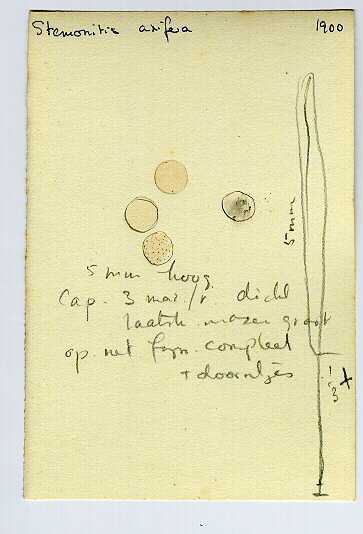 Stemonitis axifera 1900
5 mm
5 mm hoog
Cap. 3 maz/r. dicht
laatste mazen groot
op. net fijn. compleet
+ doorntjes
1/3 +